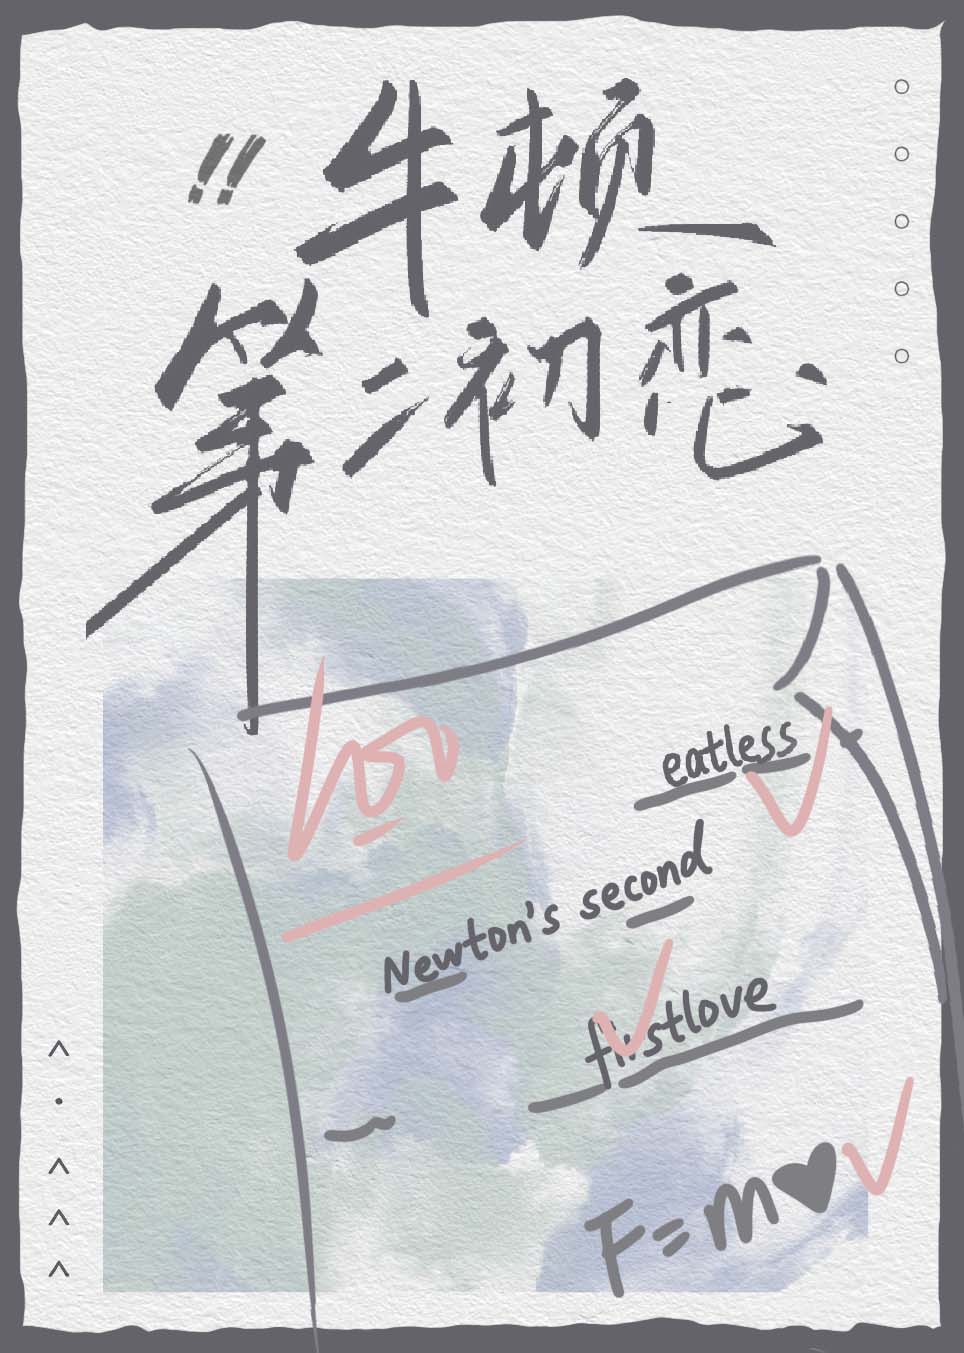 !!
牛顿
第二初恋
100
eatless
Newton's second
firstlove
F=m♥